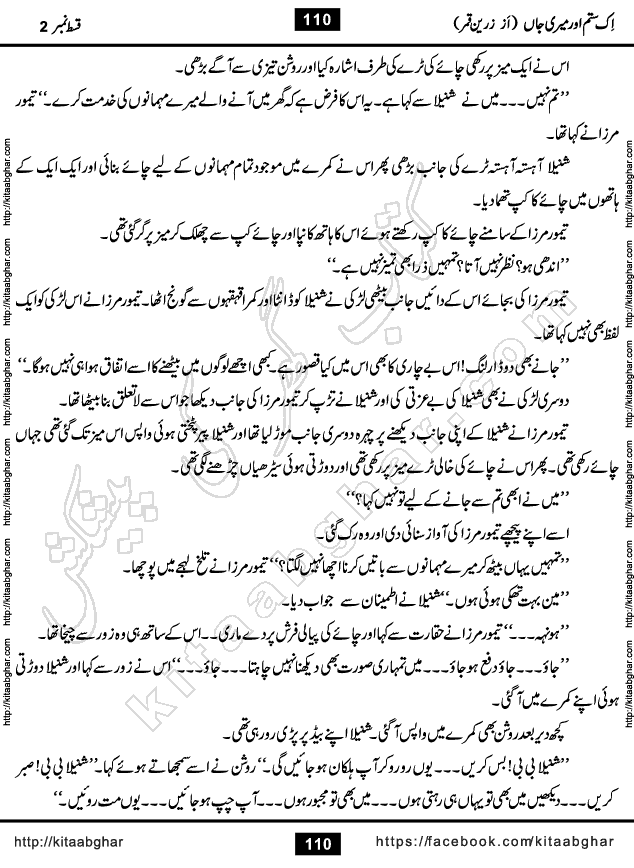 اِک ستم اور میری جاں (از زرین قمر)
110
قسط نمبر 2
اس نے ایک میز پر رکھی چائے کی ٹرے کی طرف اشارہ کیا اور روشن تیزی سے آگے بڑھی۔
’’تم نہیں۔۔۔میں نے شنیلا سے کہا ہے۔ یہ اس کا فرض ہے کہ گھر میں آنے والے میرے مہمانوں کی خدمت کرے۔‘‘ تیمور
مرزا نے کہا تھا۔
شنیلا آہستہ آہستہ ٹرے کی جانب بڑھی پھر اس نے کمرے میں موجود تمام مہمانوں کے لیے چائے بنائی اور ایک ایک کے
ہاتھوں میں چائے کا کپ تھما دیا۔
تیمور مرزا کے سامنے چائے کا کپ رکھتے ہوئے اس کا ہاتھ کانپا اور چائے کپ سے چھلک کر میز پر گر گئی تھی۔
’’اندھی ہو؟ نظر نہیں آتا؟ تمہیں ذرا بھی تمیز نہیں ہے۔‘‘
تیمور مرزا کی بجائے اس کے دائیں جانب بیٹھی لڑکی نے شنیلا کو ڈانٹا اور کمرا قہقہوں سے گونج اٹھا۔ تیمور مرزا نے اس لڑکی کو ایک
لفظ بھی نہیں کہا تھا۔
’’جانے بھی دو ڈارلنگ! اس بے چاری کا بھی اس میں کیا قصور ہے۔ کبھی اچھے لوگوں میں بیٹھنے کا اسے اتفاق ہوا ہی نہیں ہوگا۔‘‘
دوسری لڑکی نے بھی شنیلا کی بے عزتی کی اور شنیلا نے تڑپ کر تیمور مرزا کی جانب دیکھا جو اس سے لاتعلق بنا بیٹھا تھا۔
تیمور مرزا نے شنیلا کے اپنی جانب دیکھنے پر چہرہ دوسری جانب موڑ لیا تھا اور شنیلا پیر پٹختی ہوئی واپس اس میز تک گئی تھی جہاں
چائے رکھی تھی۔ پھر اس نے چائے کی خالی ٹرے میز پر رکھی تھی اور دوڑتی ہوئی سیڑھیاں چڑھنے لگی تھی۔
’’میں نے ابھی تم سے جانے کے لیے تو نہیں کہا؟‘‘
اسے اپنے پیچھے تیمور مرزا کی آواز سنائی دی اور وہ رک گئی۔
’’تمہیں یہاں بیٹھ کر میرے مہمانوں سے باتیں کرنا اچھا نہیں لگتا؟‘‘ تیمور مرزا نے تلخ لہجے میں پوچھا۔
’’مین بہت تھکی ہوئی ہوں۔‘‘ شنیلا نے اطمینان سے جواب دیا۔
’’ہونہہ۔۔۔‘‘ تیمور مرزا نے حقارت سے کہا اور چائے کی پیالی فرش پر دے ماری۔۔اس کے ساتھ ہی وہ زور سے چیخا تھا۔
’’جاؤ۔۔۔جاؤ دفع ہو جاؤ۔۔۔میں تمہاری صورت بھی دیکھنا نہیں چاہتا۔۔۔جاؤ۔۔۔‘‘ اس نے زور سے کہا اور شنیلا دوڑتی
ہوئی اپنے کمرے میں آ گئی۔
کچھ دیر بعد روشن بھی کمرے میں واپس آ گئی۔ شنیلا اپنے بیڈ پر پڑی رو رہی تھی۔
’’شنیلا بی بی! بس کریں۔۔۔یوں رو رو کر آپ ہلکان ہو جائیں گی۔‘‘ روشن نے اسے سمجھاتے ہوئے کہا۔ ’’شنیلا بی بی! صبر
کریں۔۔۔دیکھیں میں بھی تو یہاں ہی رہتی ہوں۔۔۔میں بھی تو مجبور ہوں۔۔۔آپ چپ ہو جائیں۔۔۔یوں مت روئیں۔‘‘
http://kitaabghar.com
http://kitaabghar.com
http://kitaabghar.com
http://kitaabghar.com
http://kitaabghar.com
http://kitaabghar.com
http://kitaabghar.com
http://kitaabghar.com
http://kitaabghar.com
http://kitaabghar.com
http://kitaabghar.com
http://kitaabghar.com
کتاب گھر کی پیشکش
kitaabghar.com
http://kitaabghar
110
https://facebook.com/kitaabghar